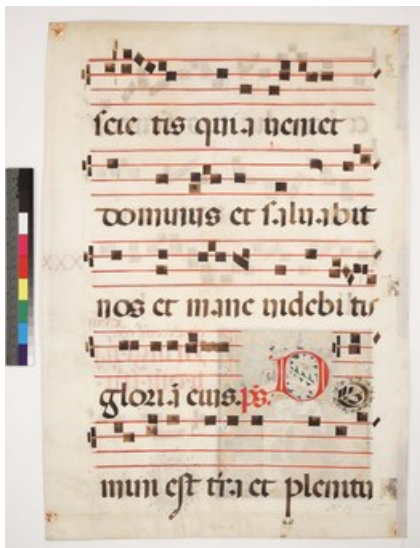 scie tis quia ueniet
dominus et saluabit
nos et mane uidebi tis
gloriā eius. ps. D O
mini est t̄ra et plenitu